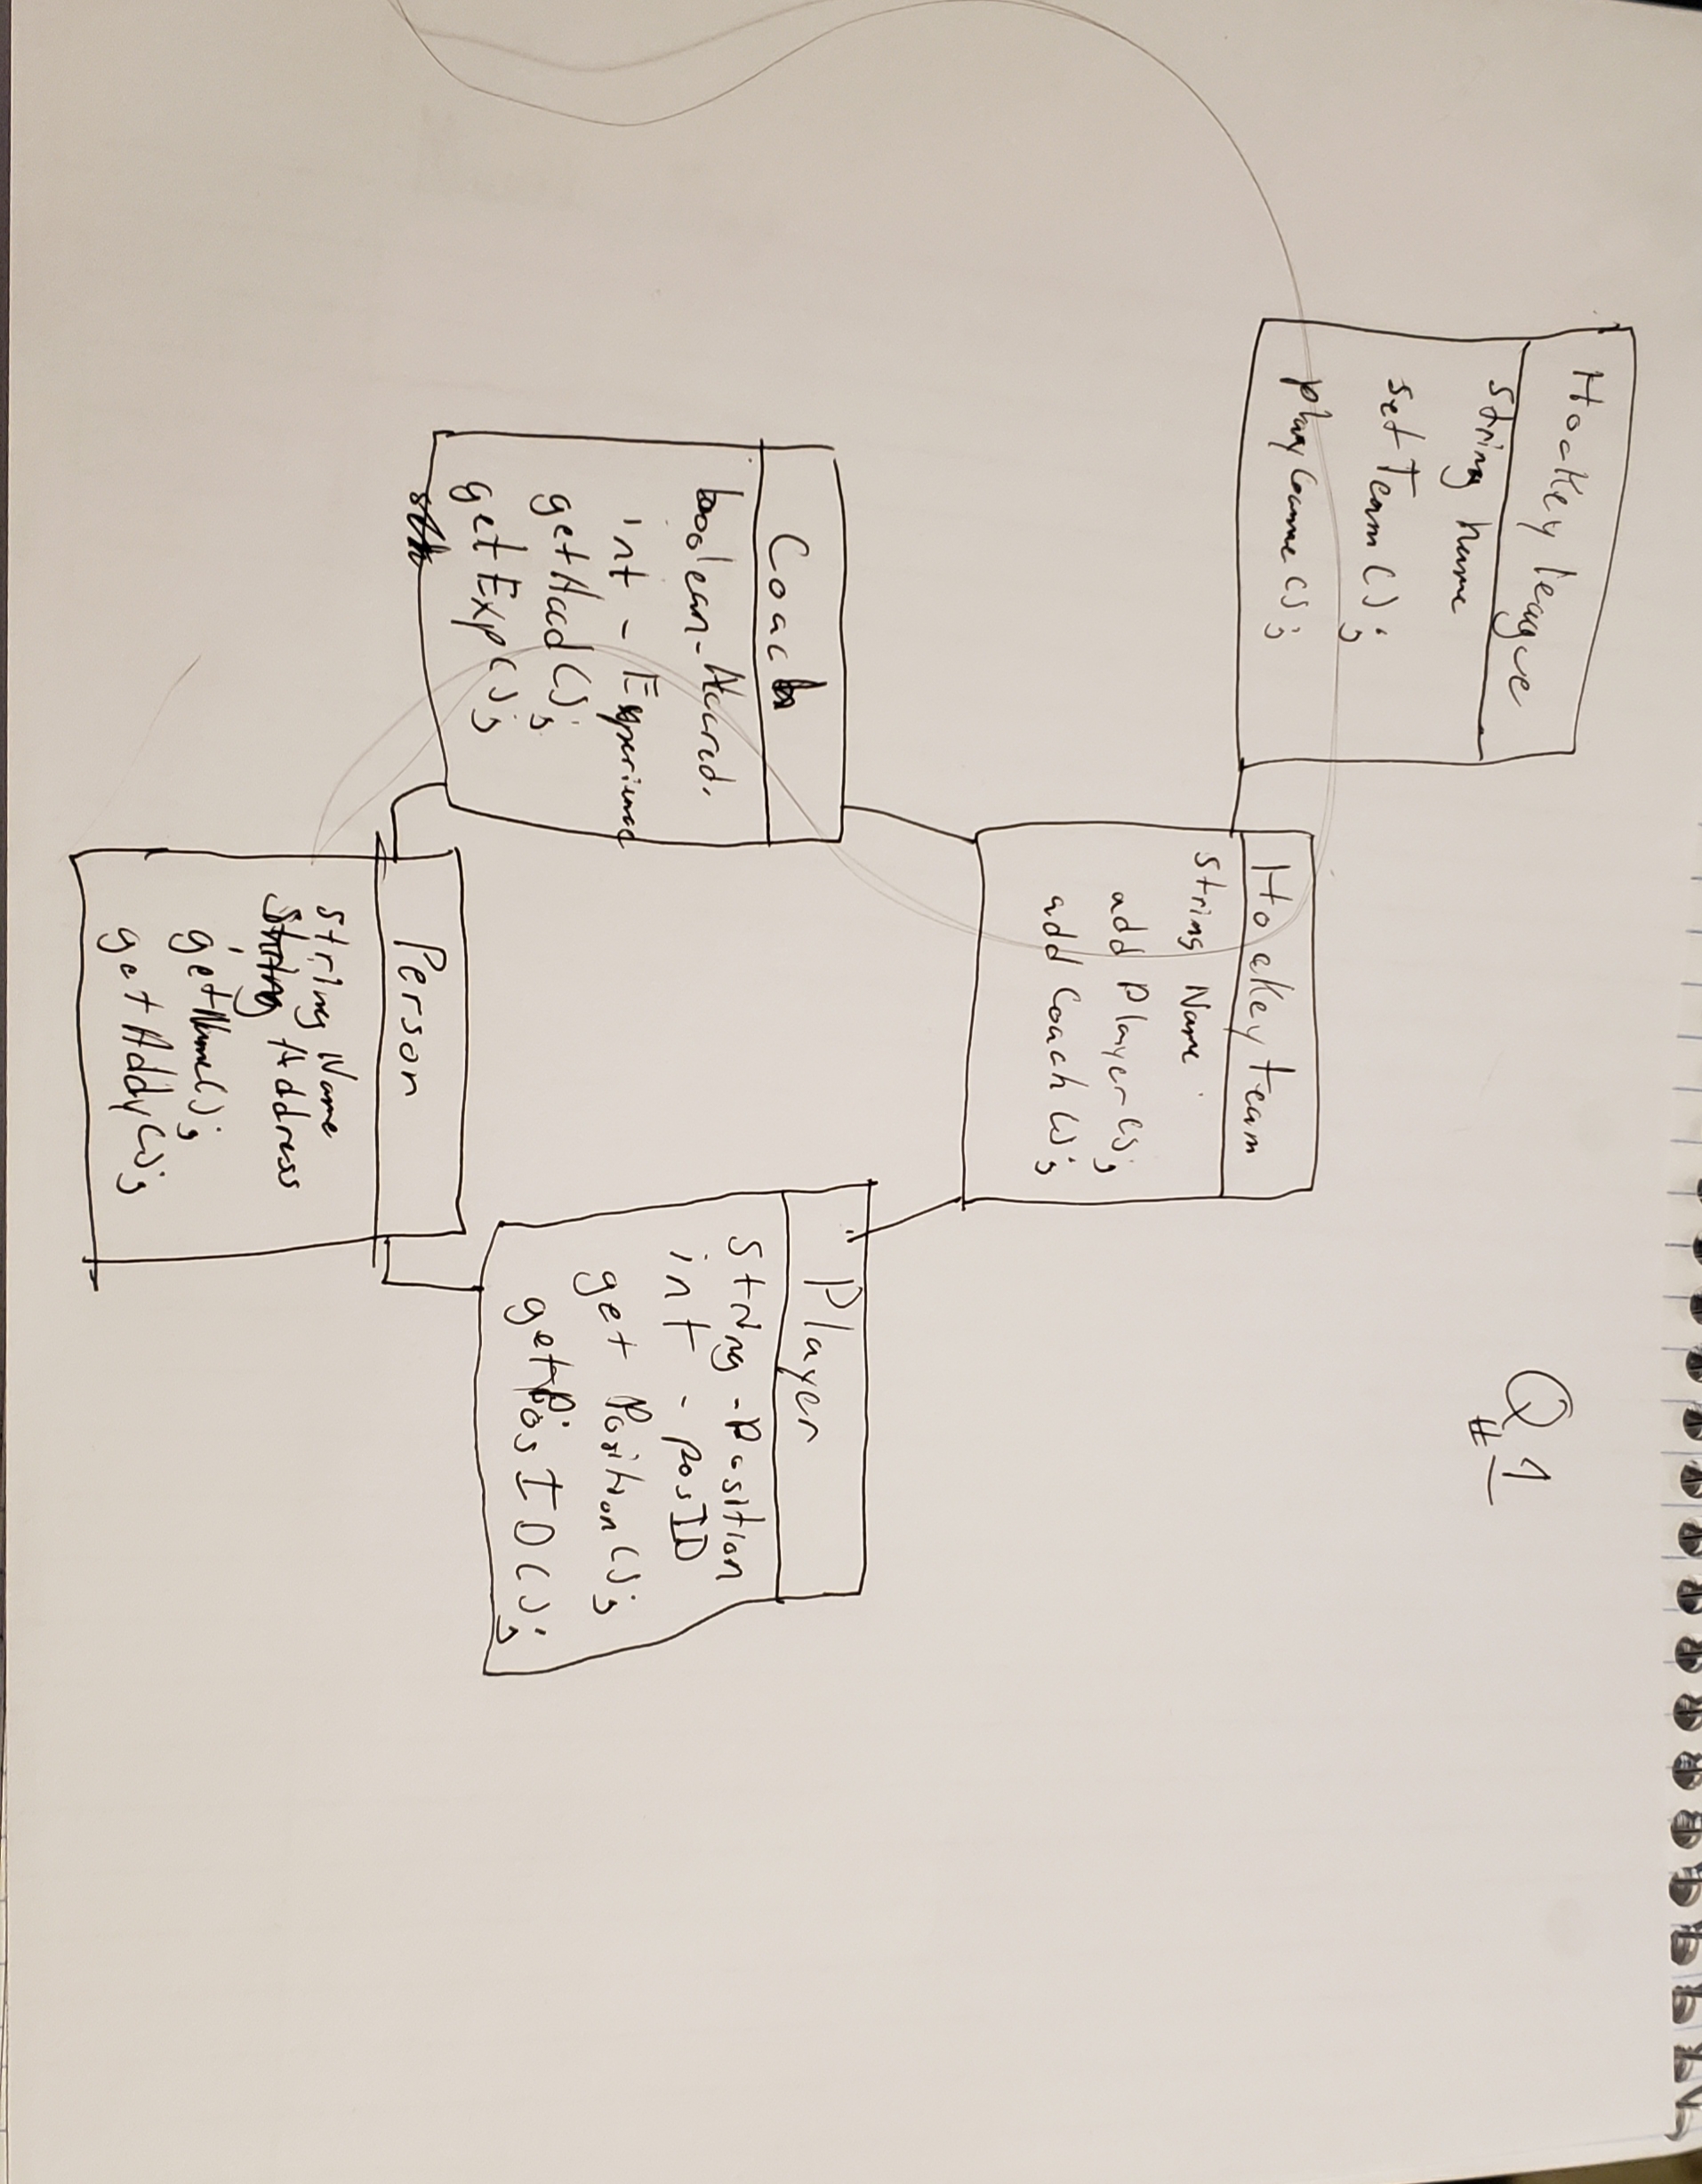 Q1
#
Hockey league
String name
set Team();
playGame();
Hockey team
String Name
add Player();
add Coach();
Coach
boolean - Accred.
int - Experience
getAccd();
getExp();
Player
String - Position
int - posID
get Position();
getPosID();
Person
String Name
String Address
getName();
getAddy();